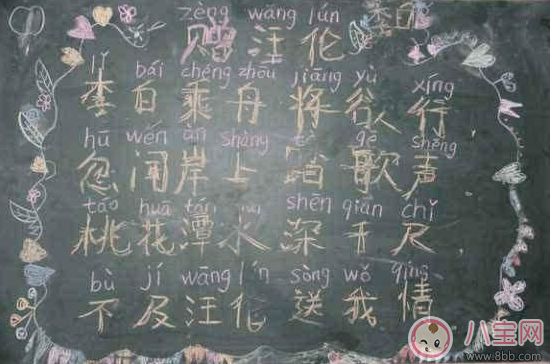 zèng wāng lún
赠汪伦 李白
lǐ bái chéng zhōu jiāng yù xíng
李白乘舟将欲行
hū wén àn shàng tà gē shēng
忽闻岸上踏歌声
táo huā tán shēn qiān chǐ
桃花潭水深千尺
bù jí wāng lún sòng wǒ qíng
不及汪伦送我情
八宝网
www.8bb.com